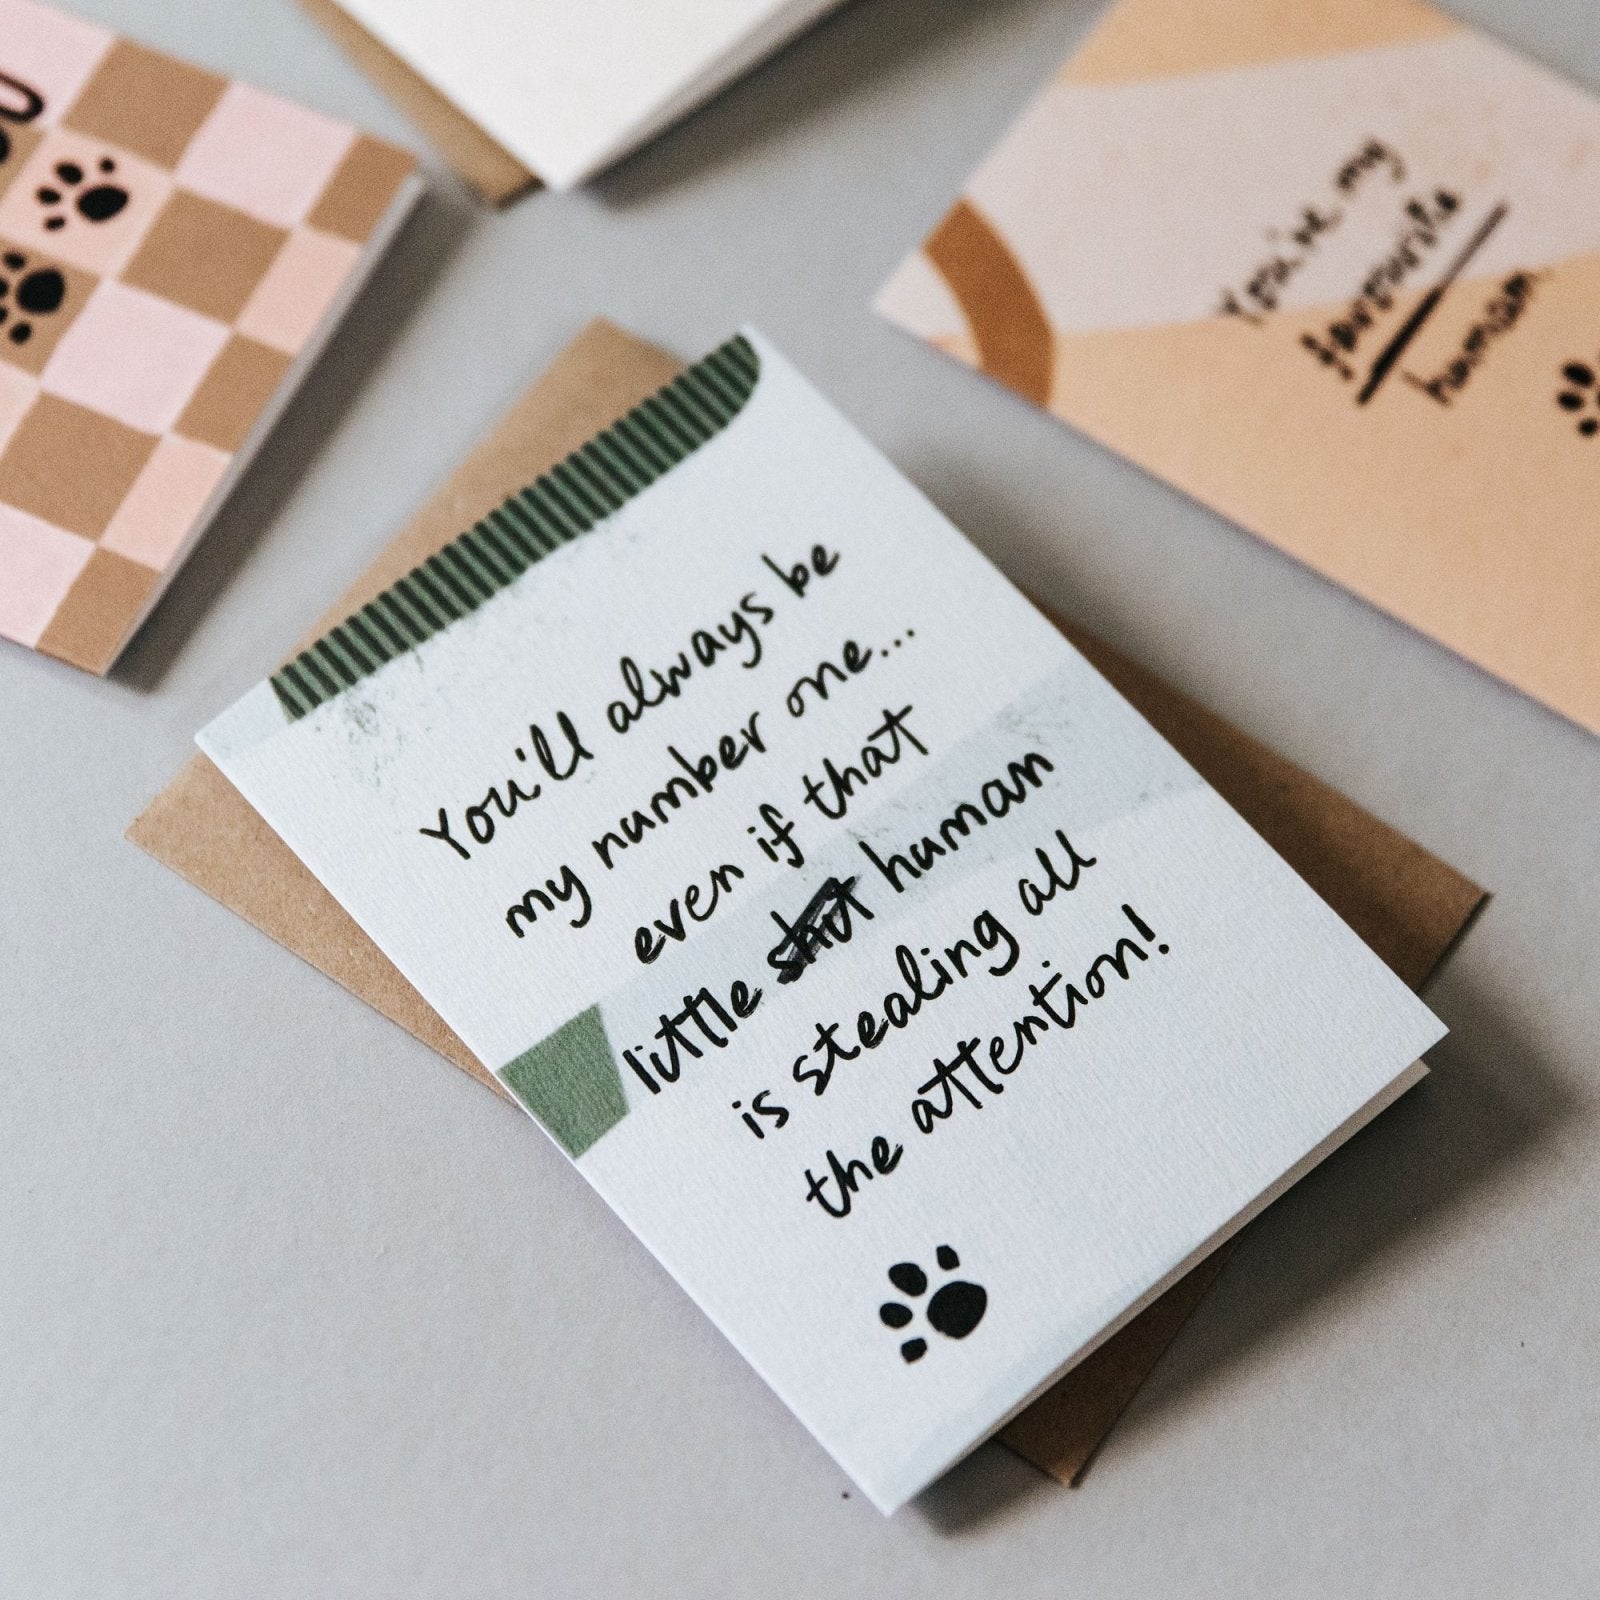 You're my
favourite
human.
You'll always be
my number one...
even if that
little shit human
is stealing all
the attention!